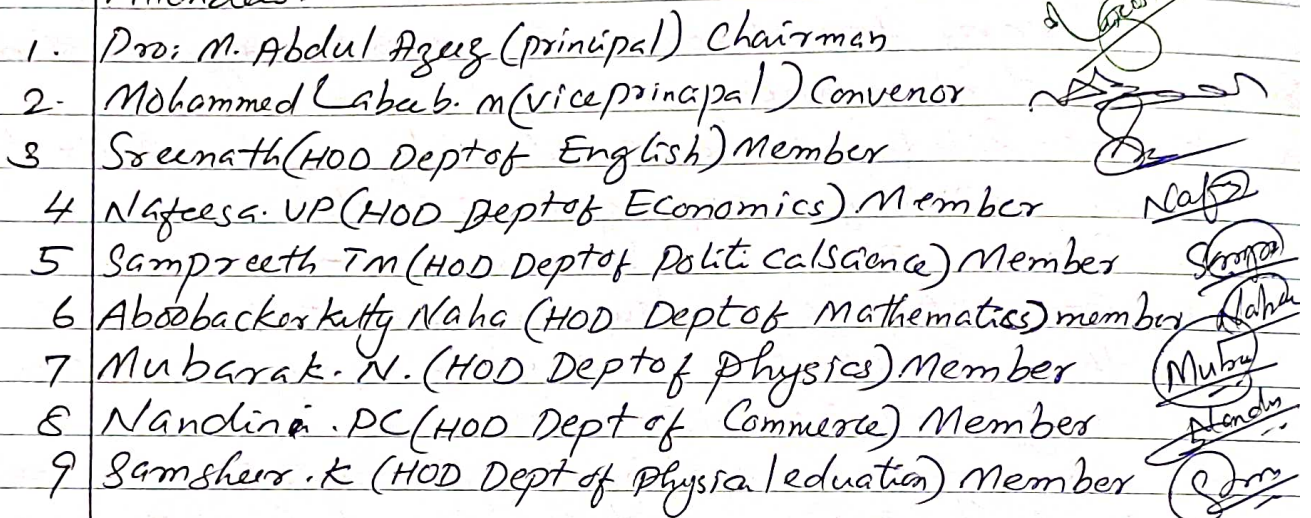 1. Pro: M. Abdul Azeez (principal) Chairman
2- Mohammed Labeeb. m (vice prinapal) Convenor
3 Sreenath (HOD Dept of English) Member
4 Nafeesa. UP (HOD Dept of Economics) Member Nafs
5 Sampreeth TM (HOD Dept of Politi cal Science) Member
6 Aboobacker kutty Naha (HOD Dept of Mathematics) member Naha
7 Mubarak. N. (HOD Dept of physics) Member Muba
8 Nandini. PC (HOD Dept of Commerce) Member Nandu
9 Samsheer. K (HOD Dept of physical eduation) Member